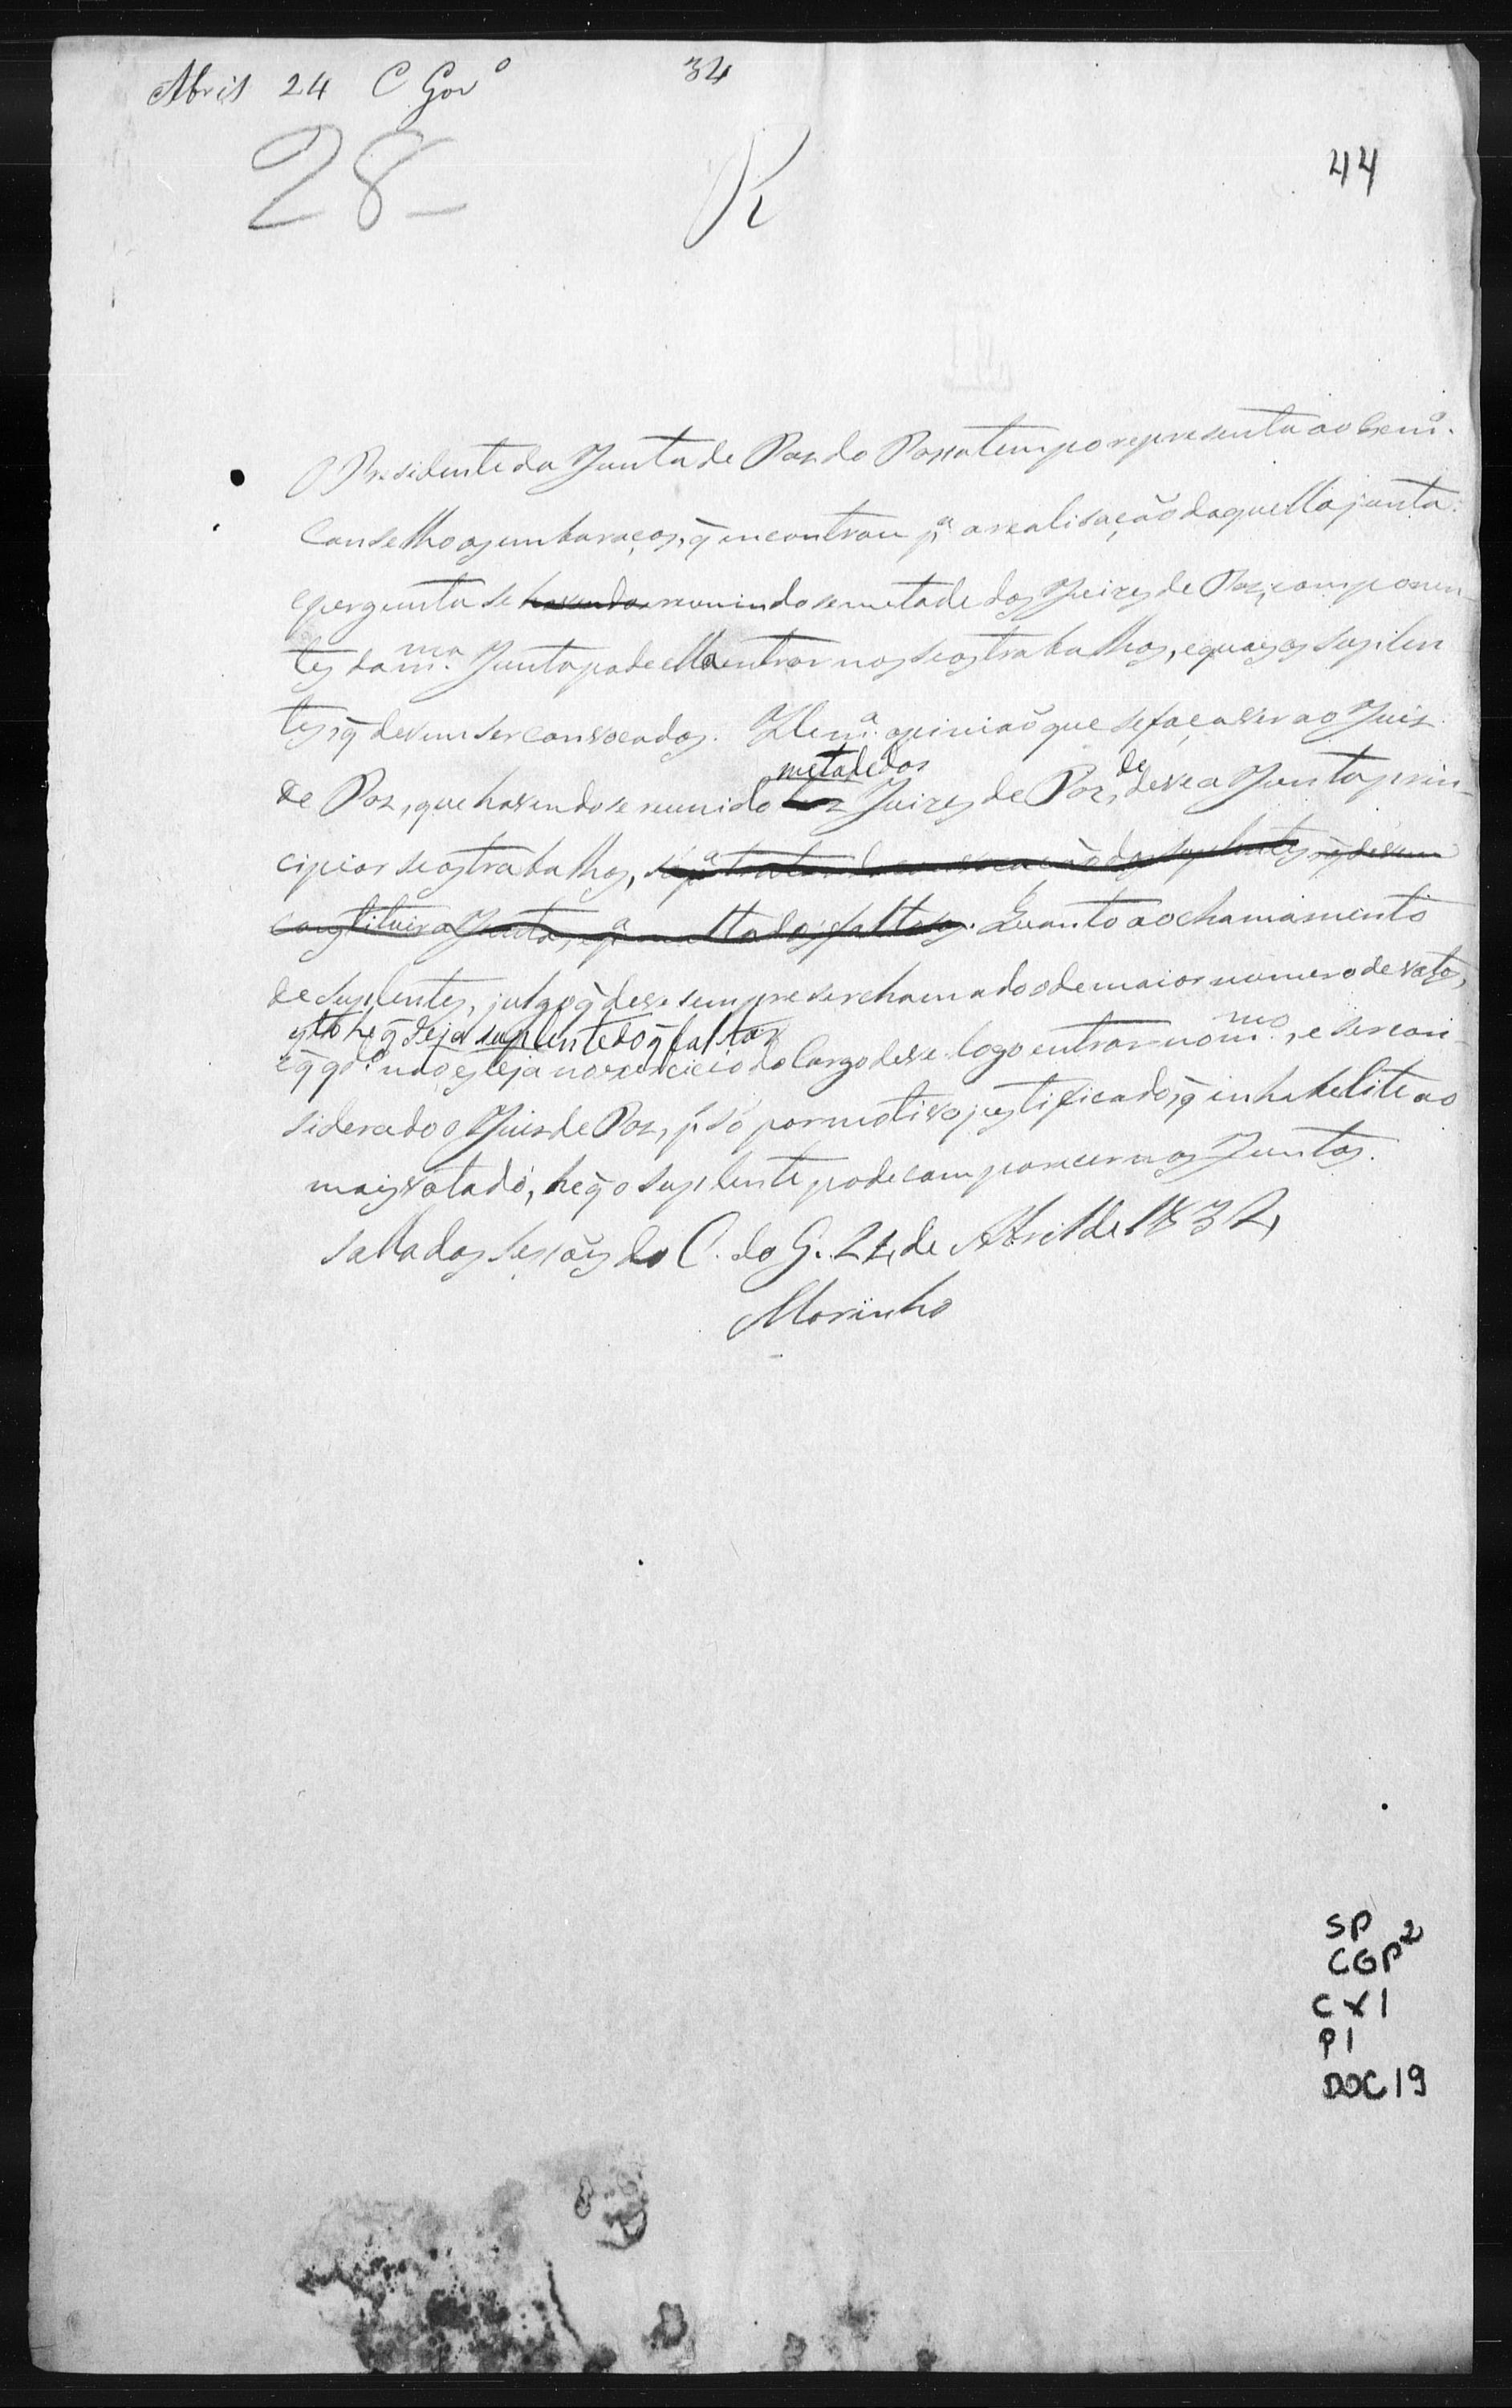 Abril 24 C Gov.º 34
28-
R
44
O Presidente da Junta de Paz do Passatempo representa ao Exmº.
Conselho os embaraços, q̃ encontrou pª a realisação daquella junta:
e pergunta se havendo reunindo se metade dos Juizes de Paz, componen-
tes da mma. Junta pode ella entrar nos seos trabalhos, e quaes os suplen
tes, q̃ devem ser convocados. He mª. opinião que se faça ver ao Juis
de Paz, que havendo se reunido metade dos Juizes de Paz, deve a Junta prin-
cipiar seos trabalhos, se pª tratar da convocação dos suplentes, q̃ devem
constituir a Junta, e pª multa dos faltosos. Quanto ao chamamento
de suplentes, julgo q̃ deve sempre ser chamado o de maior numero de votos,
isto he q̃ seja suplente do q̃ faltar
e q̃ qdo. não esteja no exercicio do Cargo deve logo entrar no mmo., e ser con-
siderado o Juis de Paz, p. só por motivo justificado, q̃ inhabelite ao
mais votado, he q̃ o suplente pode comparecer nas Juntas.
Salla das sessões do C. do G. 24 de Abril de 1832,
Marinho
SP
CGP2
CX1
P1
DOC19